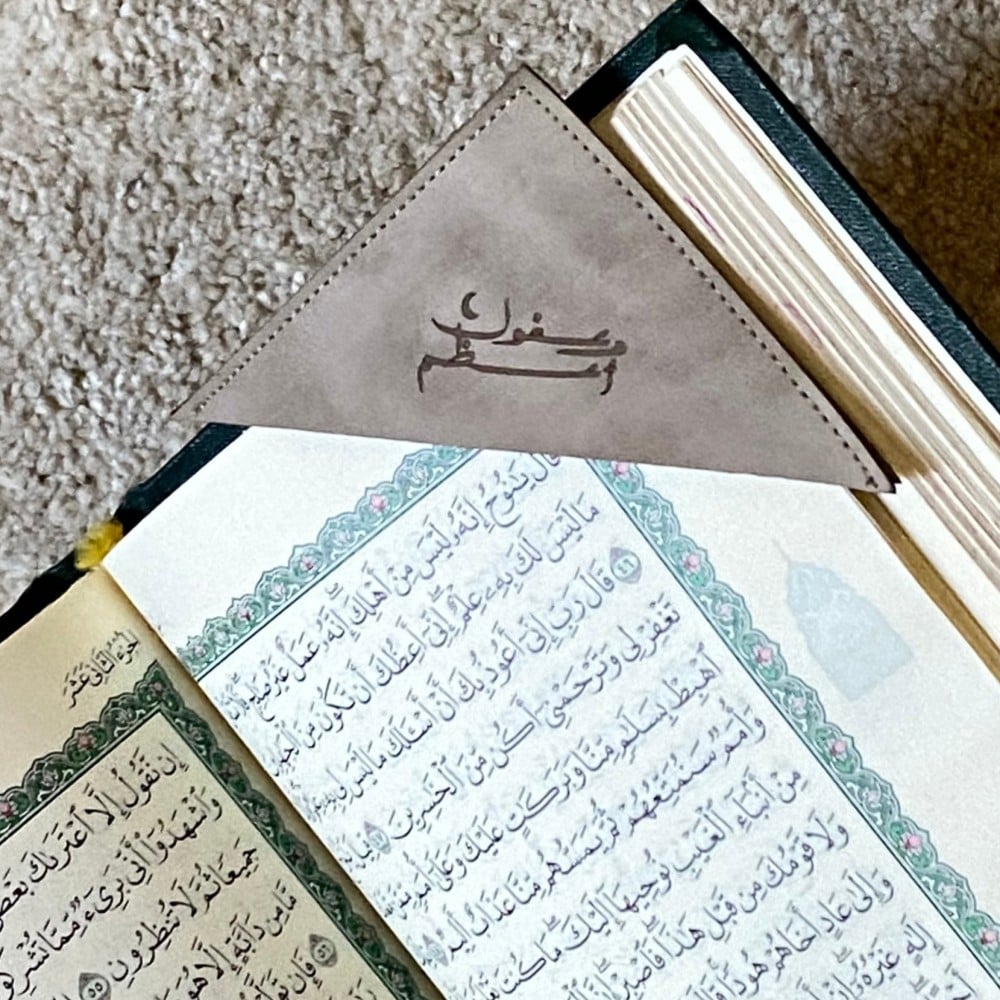 قَالَ يَٰنُوحُ إِنَّهُۥ لَيْسَ مِنْ أَهْلِكَ إِنَّهُۥ عَمَلٌ غَيْرُ صَٰلِحٍ
مَا لَيْسَ لَكَ بِهِۦ عِلْمٌ إِنِّىٓ أَعِظُكَ أَن تَكُونَ مِنَ ٱلْجَٰهِلِينَ
٤٦ قَالَ رَبِّ إِنِّىٓ أَعُوذُ بِكَ أَنْ أَسْـَٔلَكَ مَا لَيْسَ لِى
تَغْفِرْ لِى وَتَرْحَمْنِىٓ أَكُن مِّنَ ٱلْخَٰسِرِينَ ٤٧ قِيلَ
ٱهْبِطْ بِسَلَٰمٍ مِّنَّا وَبَرَكَٰتٍ عَلَيْكَ وَعَلَىٰٓ أُمَمٍ مِّمَّن
وَأُمَمٌ سَنُمَتِّعُهُمْ ثُمَّ يَمَسُّهُم مِّنَّا عَذَابٌ أَلِيمٌ
مِنْ أَنۢبَآءِ ٱلْغَيْبِ نُوحِيهَآ إِلَيْكَ مَا كُنتَ
وَلَا قَوْمُكَ مِن قَبْلِ هَٰذَا فَٱصْبِرْ إِنَّ
وَإِلَىٰ عَادٍ أَخَاهُمْ هُودًا
إِلَٰهٍ غَيْرُهُۥٓ
الجزء الثاني عشر
إِن نَّقُولُ إِلَّا ٱعْتَرَىٰكَ بَعْضُ
وَٱشْهَدُوٓا۟ أَنِّى بَرِىٓءٌ مِّمَّا تُشْرِكُونَ
جَمِيعًا ثُمَّ لَا تُنظِرُونِ ٥٥
مَّا مِن دَآبَّةٍ إِلَّا هُوَ
٥٦ فَإِن